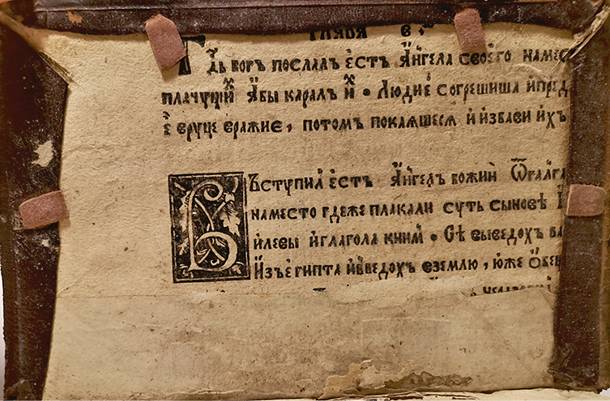 Глава в҃
Гдь Богъ послалъ естъ А҆нгела своего намес
плачущиⷯ абы каралъ иⷯ · Людие согрешиша ипред
е вруце вражие, потомъ покаяшеся и избави ихъ
Въступил естъ А҆нгелъ божии ѿгалга
наместо гдеже плакали суть сынове
илевы иглагола кним · Се выведох ва
изъегипта ивведохъ вземлю, юже обе